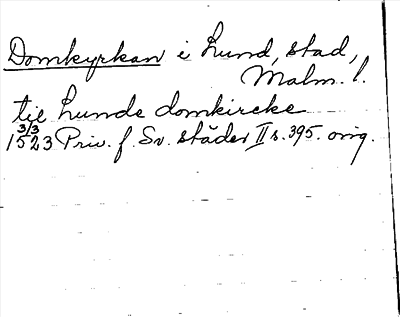 Domkyrkan i Lund, stad,
Malm. l.
tiie Lunde domkircke
3/3
1523 Priv. f. Sv. städer II s. 395. orig.